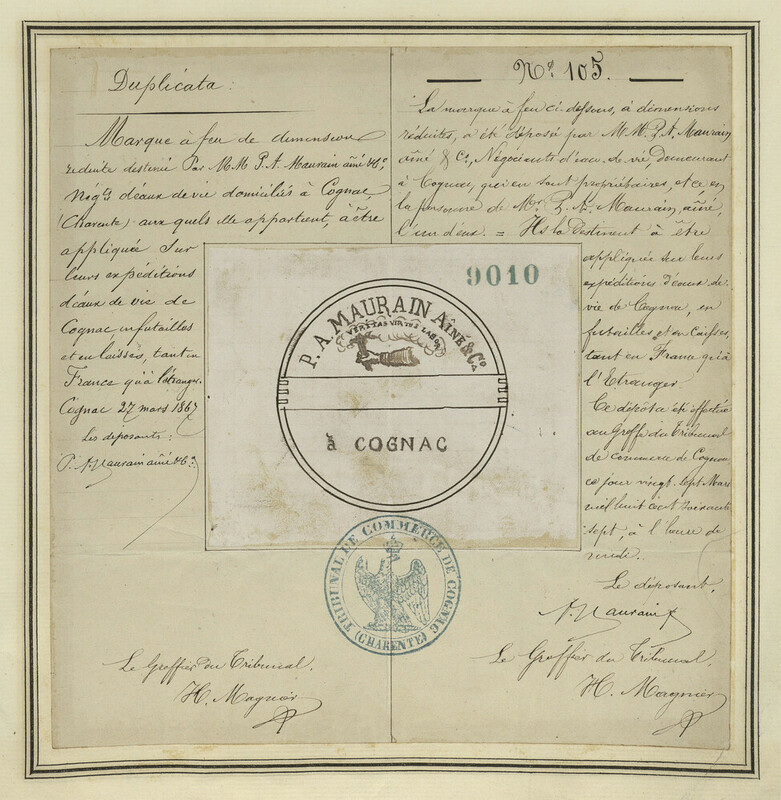 Duplicata :
Marque à feu de dimension
réduite destinée Par MM P. A. Maurain aîné & Cⁱᵉ,
Négᵗˢ d'eaux de vie domiciliés à Cognac,
(Charente) aux quels elle appartient, à être
appliquée sur
leurs expéditions
d'eaux de vie de
Cognac, en futailles
et en caisses, tant en
France qu'à l'étranger.
Cognac 27 mars 1867
Les déposants :
P. A. Maurain aîné & Cⁱᵉ
Nº 105.
La marque à feu ci-dessous, à dimensions
réduites, a été déposée par MM. P. A. Maurain
aîné & Cⁱᵉ, Négociants d'eau de vie, demeurant
à Cognac, qui en sont propriétaires, et ce en
la personne de Mʳ P. A. Maurain, aîné,
l'un d'eux. = Ils la Destinent à être
appliquée sur leurs
expéditions d'eaux-de-
vie de Cognac, en
futailles et en caisses,
tant en France qu'à
l'Etranger.
Ce dépôt a été effectué
au Greffe du Tribunal
de commerce de Cognac
ce jour vingt-sept Mars
mil huit cent soixante
sept, à l'heure de
midi.
Le déposant,
A. Maurain
9010
P. A. MAURAIN AÎNÉ & Cº
VERITAS VIRTUS LABOR
à COGNAC
TRIBUNAL DE COMMERCE DE COGNAC
(CHARENTE)
Le Greffier du Tribunal.
H. Magnier
Le Greffier du Tribunal,
H. Magnier